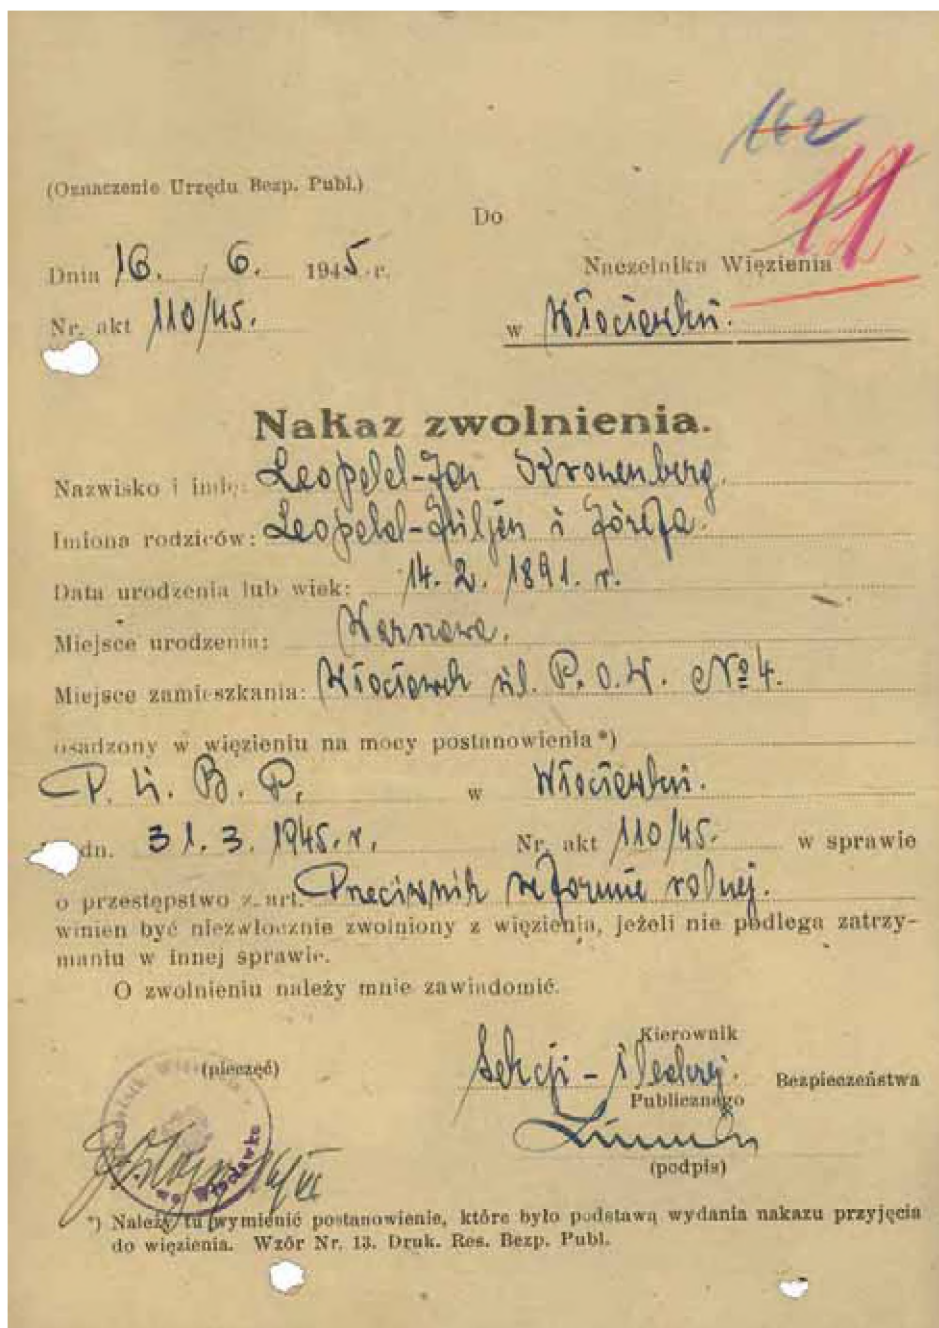 162
11
(Oznaczenie Urzędu Bezp. Publ.)
Do
Dnia 16. / 6. 1945 r.
Naczelnika Więzienia
Nr. akt 110/45.
w Włocławku.
Nakaz zwolnienia.
Nazwisko i imię: Leopold-Jan Kronenberg.
Imiona rodziców: Leopold-Juljan i Józefa.
Data urodzenia lub wiek: 14. 2. 1891. r.
Miejsce urodzenia: Warszawa.
Miejsce zamieszkania: Włocławek ul. P.O.W. № 4.
osadzony w więzieniu na mocy postanowienia *)
P. U. B. P. w Włocławku.
dn. 31. 3. 1945. r. Nr. akt 110/45. w sprawie
o przestępstwo z art. Przeciwnik reformie rolnej.
winien być niezwłocznie zwolniony z więzienia, jeżeli nie podlega zatrzy-
maniu w innej sprawie.
O zwolnieniu należy mnie zawiadomić.
Kierownik
(pieczęć)
Sekcji - Śledczej. Bezpieczeństwa
Publicznego
(podpis)
we Włocławku
*) Należy tu wymienić postanowienie, które było podstawą wydania nakazu przyjęcia
do więzienia. Wzór Nr. 13. Druk. Res. Bezp. Publ.